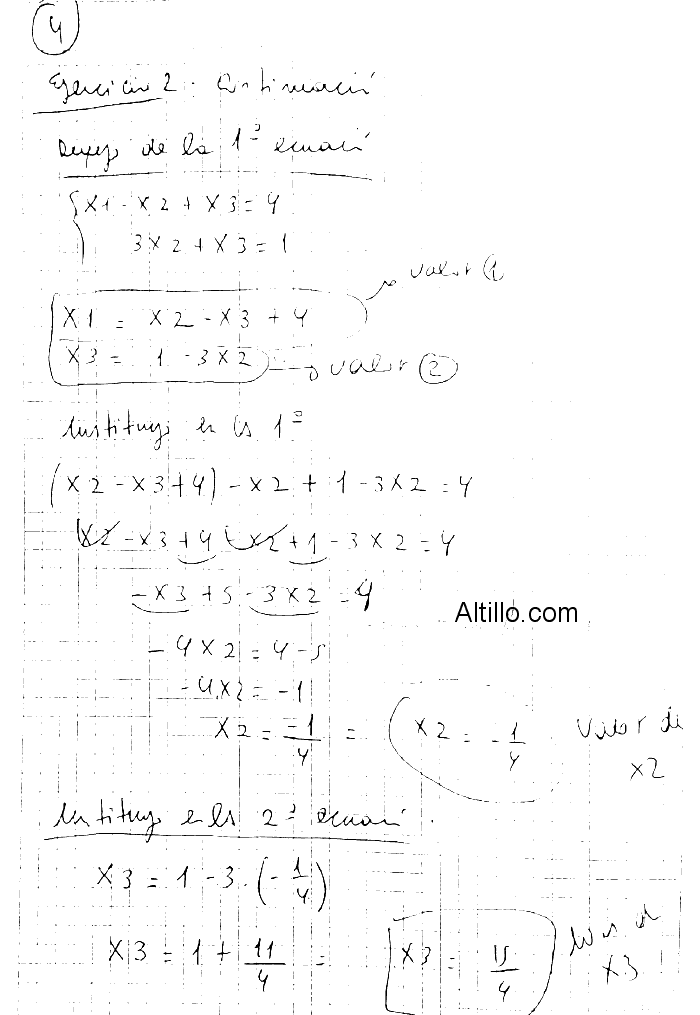 4
Ejercicio 2. Continuació
Despejo de la 1ª ecuació
X1 - X2 + X3 = 4
3X2 + X3 = 1
valor 1
X1 = X2 - X3 + 4
X3 = 1 - 3X2 → valor 2
en la 1ª
(X2 - X3 + 4) - X2 + 1 - 3X2 = 4
X2 - X3 + 4 - X2 + 1 - 3X2 = 4
-X3 + 5 - 3X2 = 4
Altillo.com
-4X2 = 4 - 5
-4X2 = -1
X2 = -1/4 = X2 = -1/4 Valor de
X2
en la 2ª ecuació.
X3 = 1 - 3 . (-1/4)
X3 = 1 + 11/4 = X3 = 15/4
X3